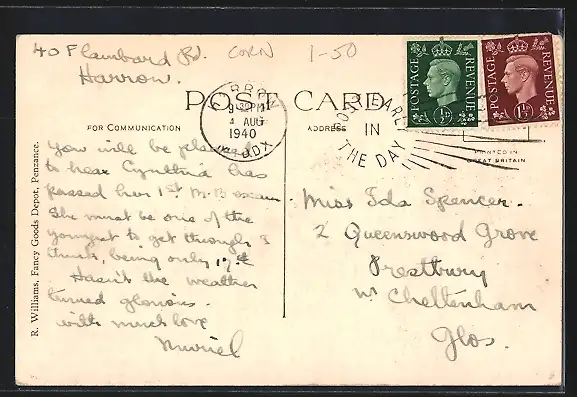 40 Flambard Rd. CORN 1-50
Harrow.
POST CARD
POSTAGE REVENUE ½D
POSTAGE REVENUE 1½D
HARROW
9 PM
AUG
1940
MDDX
POST EARLY
IN
THE DAY
FOR COMMUNICATION
ADDRESS
PRINTED IN
GREAT BRITAIN
You will be pleased
to hear Cynthia has
passed her 1st M.B exam.
She must be one of the
youngest to get through I
think, being only
Hasn't the weather
turned glorious.
with much love
Muriel
Miss Ida Spencer.
2 Queenswood Grove
Prestbury
Nr Cheltenham
Glos.
R. Williams, Fancy Goods Depot, Penzance.